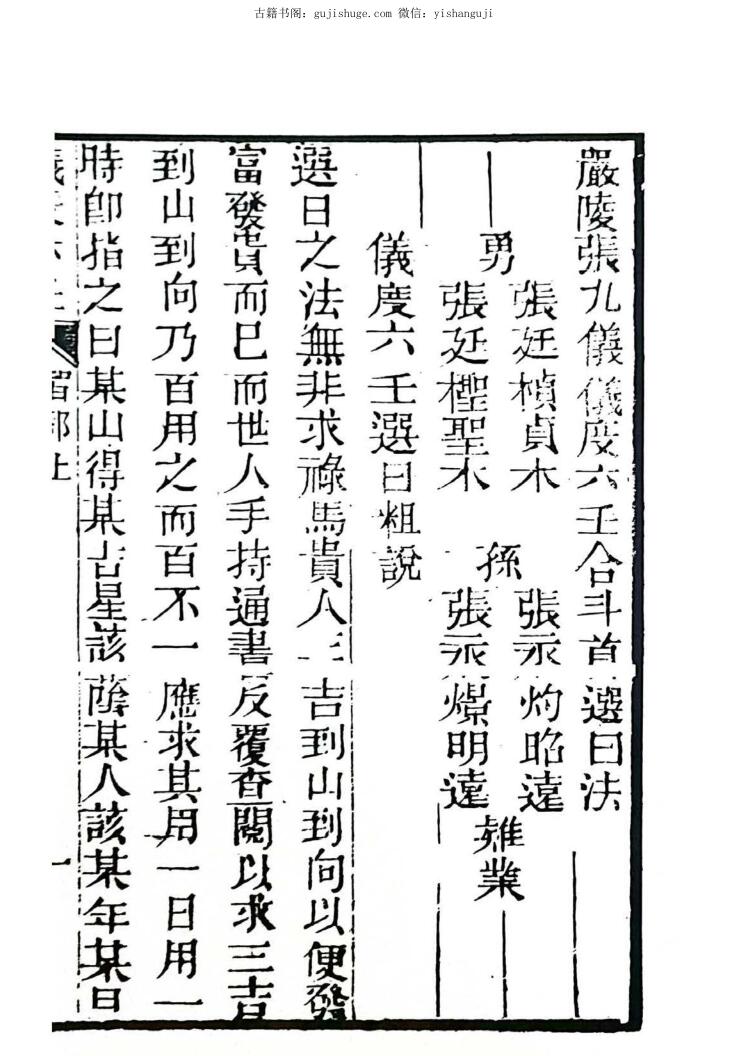 古籍书阁：gujishuge.com 微信：yishanguji
嚴陵張九儀儀度六壬合斗首選日法
男 張廷楨貞木 孫 張永灼昭遠
張廷檉聖木 張永燝明遠
雒業
儀度六壬選日粗說
選日之法無非求祿馬貴人三吉到山到向以便發
富發貴而已而世人手持通書反覆查閱以求三吉
到山到向乃百用之而百不一應求其用一日用一
時卽指之曰某山得某吉星該蔭某人該某年某日
儀度六壬 上 一